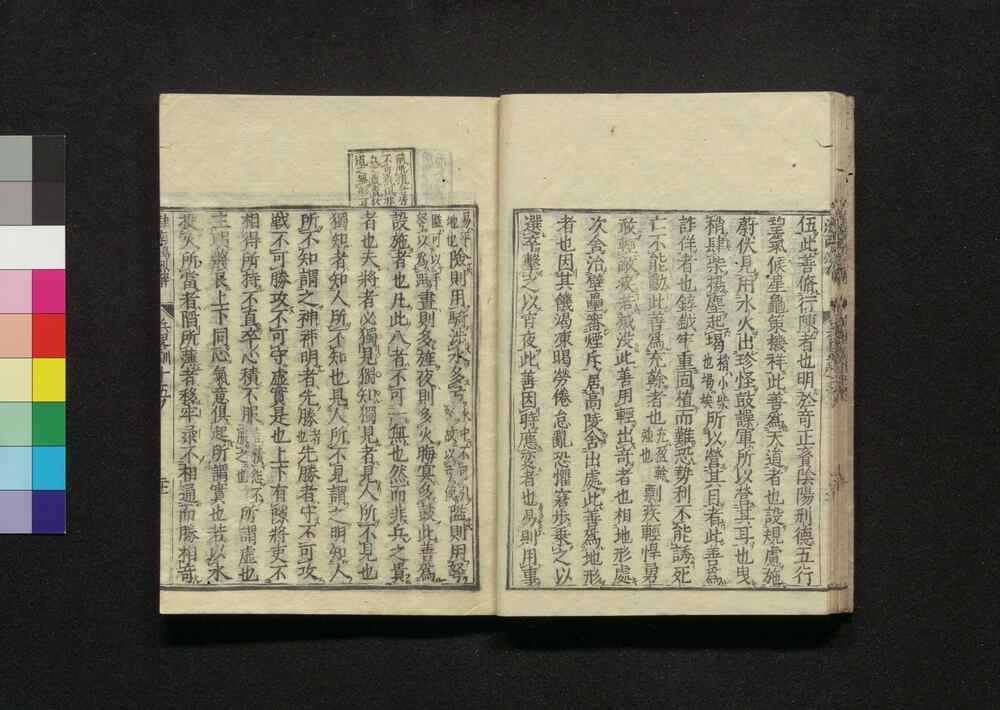 伍此善脩行陳者也明於奇正賌陰陽刑德五行
望氣候星龜策禨祥此善爲天道者也設規慮施
蔚伏見用水火出珍怪鼓譟軍所以營其耳也曳
稍肆柴揚塵起堨所以營其目者此善爲
詐佯者也錞鉞牢重固植而難恐勢利不能誘死
亡不能動此善爲充榦者也剽疾輕悍勇
敢輕敵疾若滅没此善用輕出奇者也相地形處
次舍治壁壘審煙斥居高陵舍出處此善爲地形
者也因其饑渴凍暍勞倦怠亂恐懼窘步乘之以
選卒擊之以宵夜此善因時應變者也易則用車
險則用騎涉水多弓隘則用弩
晝則多旌夜則多火晦冥多鼓此善爲
設施者也凡此八者不可一無也然而非兵之貴
者也夫將者必獨見獨知獨見者見人所不見也
獨知者知人所不知也見人所不見謂之明知人
所不知謂之神神明者先勝者也先勝者守不可攻
戰不可勝攻不可守虛實是也上下有隙將吏不
相得所持不直卒心積不服所謂虛也
主明將良上下同心氣意俱起所謂實也若以水
投火所當者陷所薄者移牢柔不相通而勝相奇